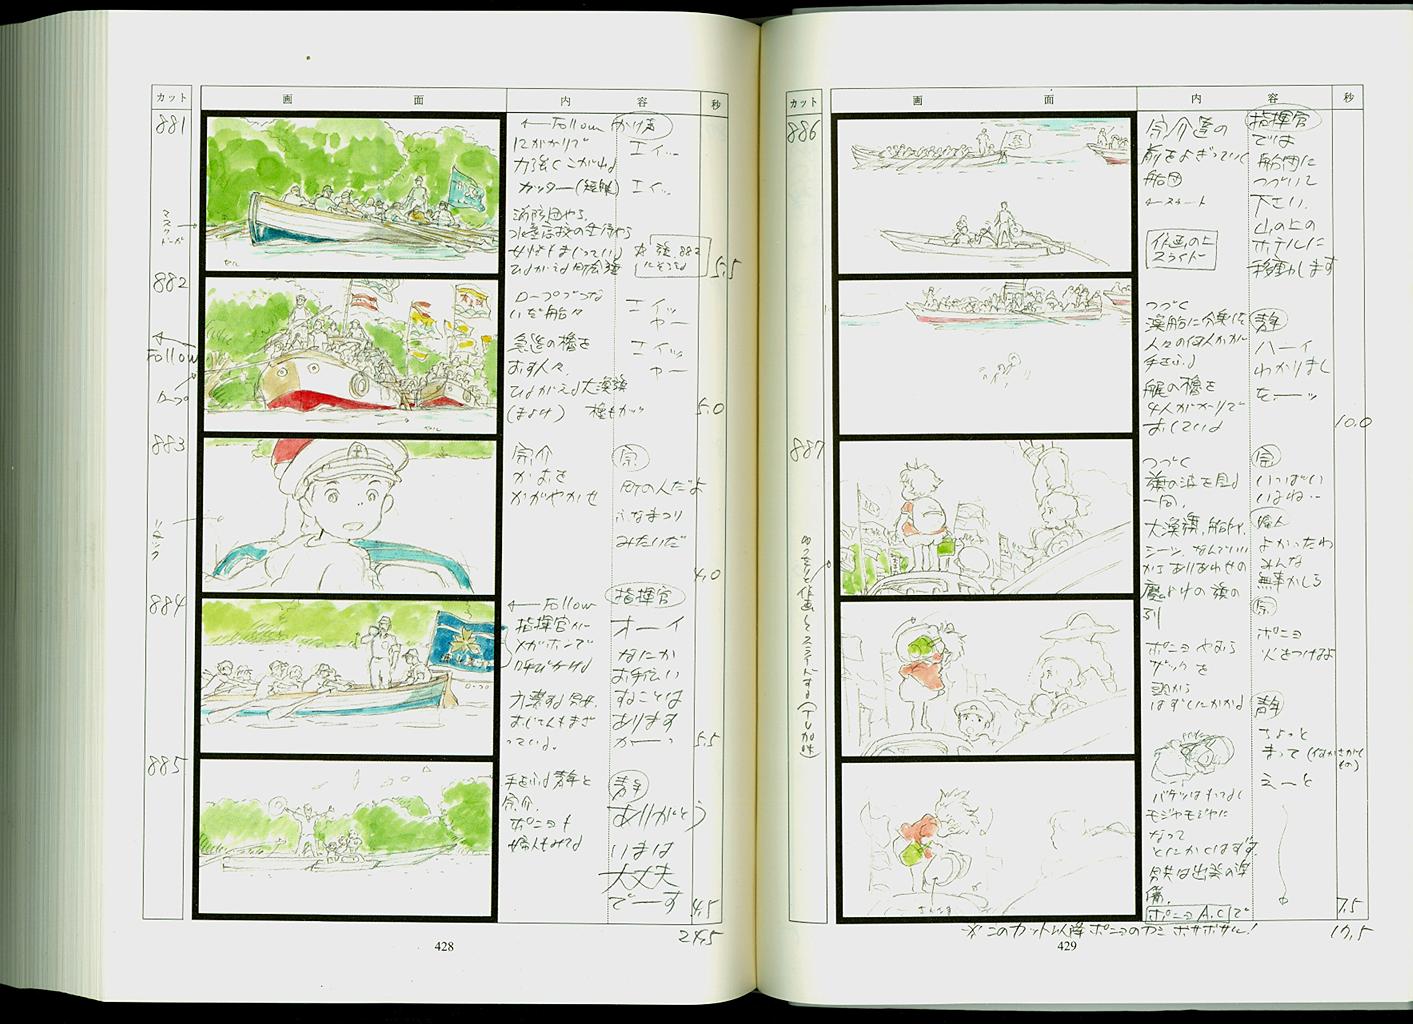 カット
画 面
内 容
秒
881
←Follow
12人がかりで
力強くこがれる
カッター(短艇)
消防団やら
水産高校の生徒やら
女性もまじっている
ひるがえる町会旗
かけ声
エイッ
エイッ
旗、882
にそろえる
5.5
882
Follow
ロープ
ロープでつな
いだ船々
急造の櫓を
おす人々、
ひるがえる大漁旗
エイッ
ヤー
エイッ
ヤー
5.0
883
宗介
かおを
かがやかせ
宗
町の人だよ
ふなまつり
みたいだ
4.0
884
←Follow
指揮官が
メガホンで
呼びかける
力漕する男女、
おじさんもまざ
っている。
指揮官
オーイ
なにか
お手伝い
することは
あります
かーっ
5.5
885
手をふる青年と
宗介、
ポニョも
婦人もみてる
青年
ありがとう
いまは
大丈夫
でーす
4.5
24.5
428
カット
画 面
内 容
秒
886
宗介達の
前をよぎっていく
船団
←スライド
作画の上
スライド
指揮官
では
船団に
つづいて
下さい、
山の上の
ホテルに
移動します
つづく
漁船に分乗した
人々の何人かが
手をふる
艇の櫓を
4人がかりで
おしている
青年
ハーイ
わかりまし
たーッ
10.0
887
つづく
旗の波を見る
一同、
大漁旗、船団、
シーツ、なんでもいい
からありあわせの
魔よけの旗の
列
ポニョ やおら
ザックを
頭から
はずしにかかる
バケツはもってるし
モジャモジャに
なって
とにかくはずす、
宗
いっぱい
いるね‥
婦人
よかったわ
みんな
無事かしら
宗
ポニョ
火をつけるよ
青年
ちょっと
まって(なにかさがしてもの)
えーと
ポニョA.Cで
7.5
※このカット以降 ポニョのカミ ボサボサに!
17.5
429